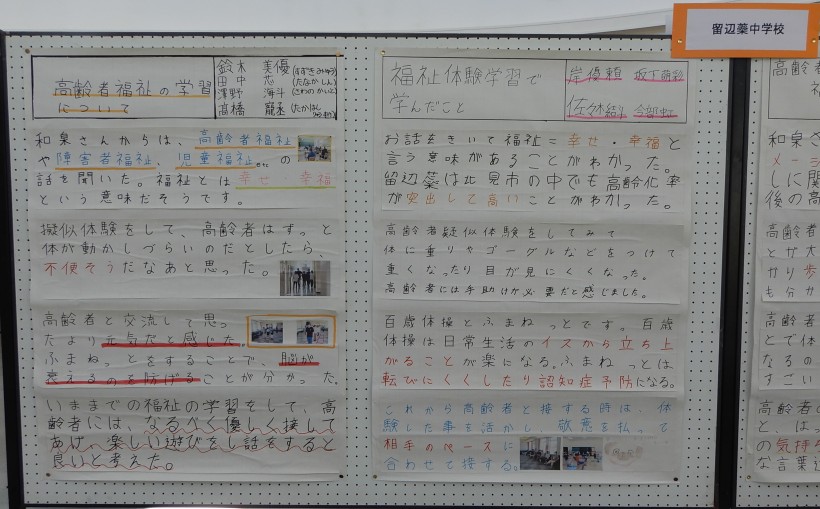 留辺蘂中学校
高齢者福祉の学習
について
鈴木 美優(すずきみゆう)
田中 志(たなかしん)
澤野 海斗(さわのかいと)
高橋 龍丞(たかはし
和泉さんからは、高齢者福祉
や障害者福祉、児童福祉。etc の
話を聞いた。福祉とは幸せ 幸福
という意味だそうです。
擬似体験をして、高齢者はずっと
体が動かしづらいのだとしたら、
不便そうだなあと思った。
高齢者と交流して思っ
たより元気だと感じた。
ふまねっとをすることで、脳が
衰えるのを防げることが分かった。
いままでの福祉の学習をして、高
齢者には、なるべく優しく接して
あげ、楽しい遊びをし話をすると
良いと考えた。
福祉体験学習で
学んだこと
岸優頼 坂下萌彩
佐々木結斗 今部虹
お話をきいて福祉=幸せ・幸福と
言う意味があることがわかった。
留辺蘂は北見市の中でも高齢化率
が突出して高いことがわかった。
高齢者疑似体験をしてみて
体に重りやゴーグルなどをつけて
重くなったり目が見にくくなった。
高齢者には手助けが必要だと感じました。
百歳体操とふまねっとです。百歳
体操は日常生活のイスから立ち上
がることが楽になる。ふまねっとは
転びにくくしたり認知症予防になる。
これから高齢者と接する時は、体
験した事を活かし、敬意を払って
相手のペースに
合わせて接する。
高齢者
福
和泉
メー
しに関
後の高
高齢者
とが大
かり歩
も分か
高齢者
とで体
なるの
すごい
高齢者
とは
の気持
な言葉